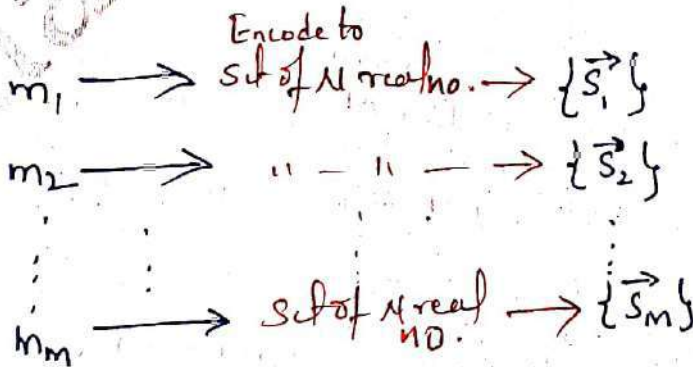 Encode to
m₁ → Set of N real no. → {S⃗₁}
m₂ → " — " — → {S⃗₂}
mₘ → Set of N real → {S⃗ₘ}
no.